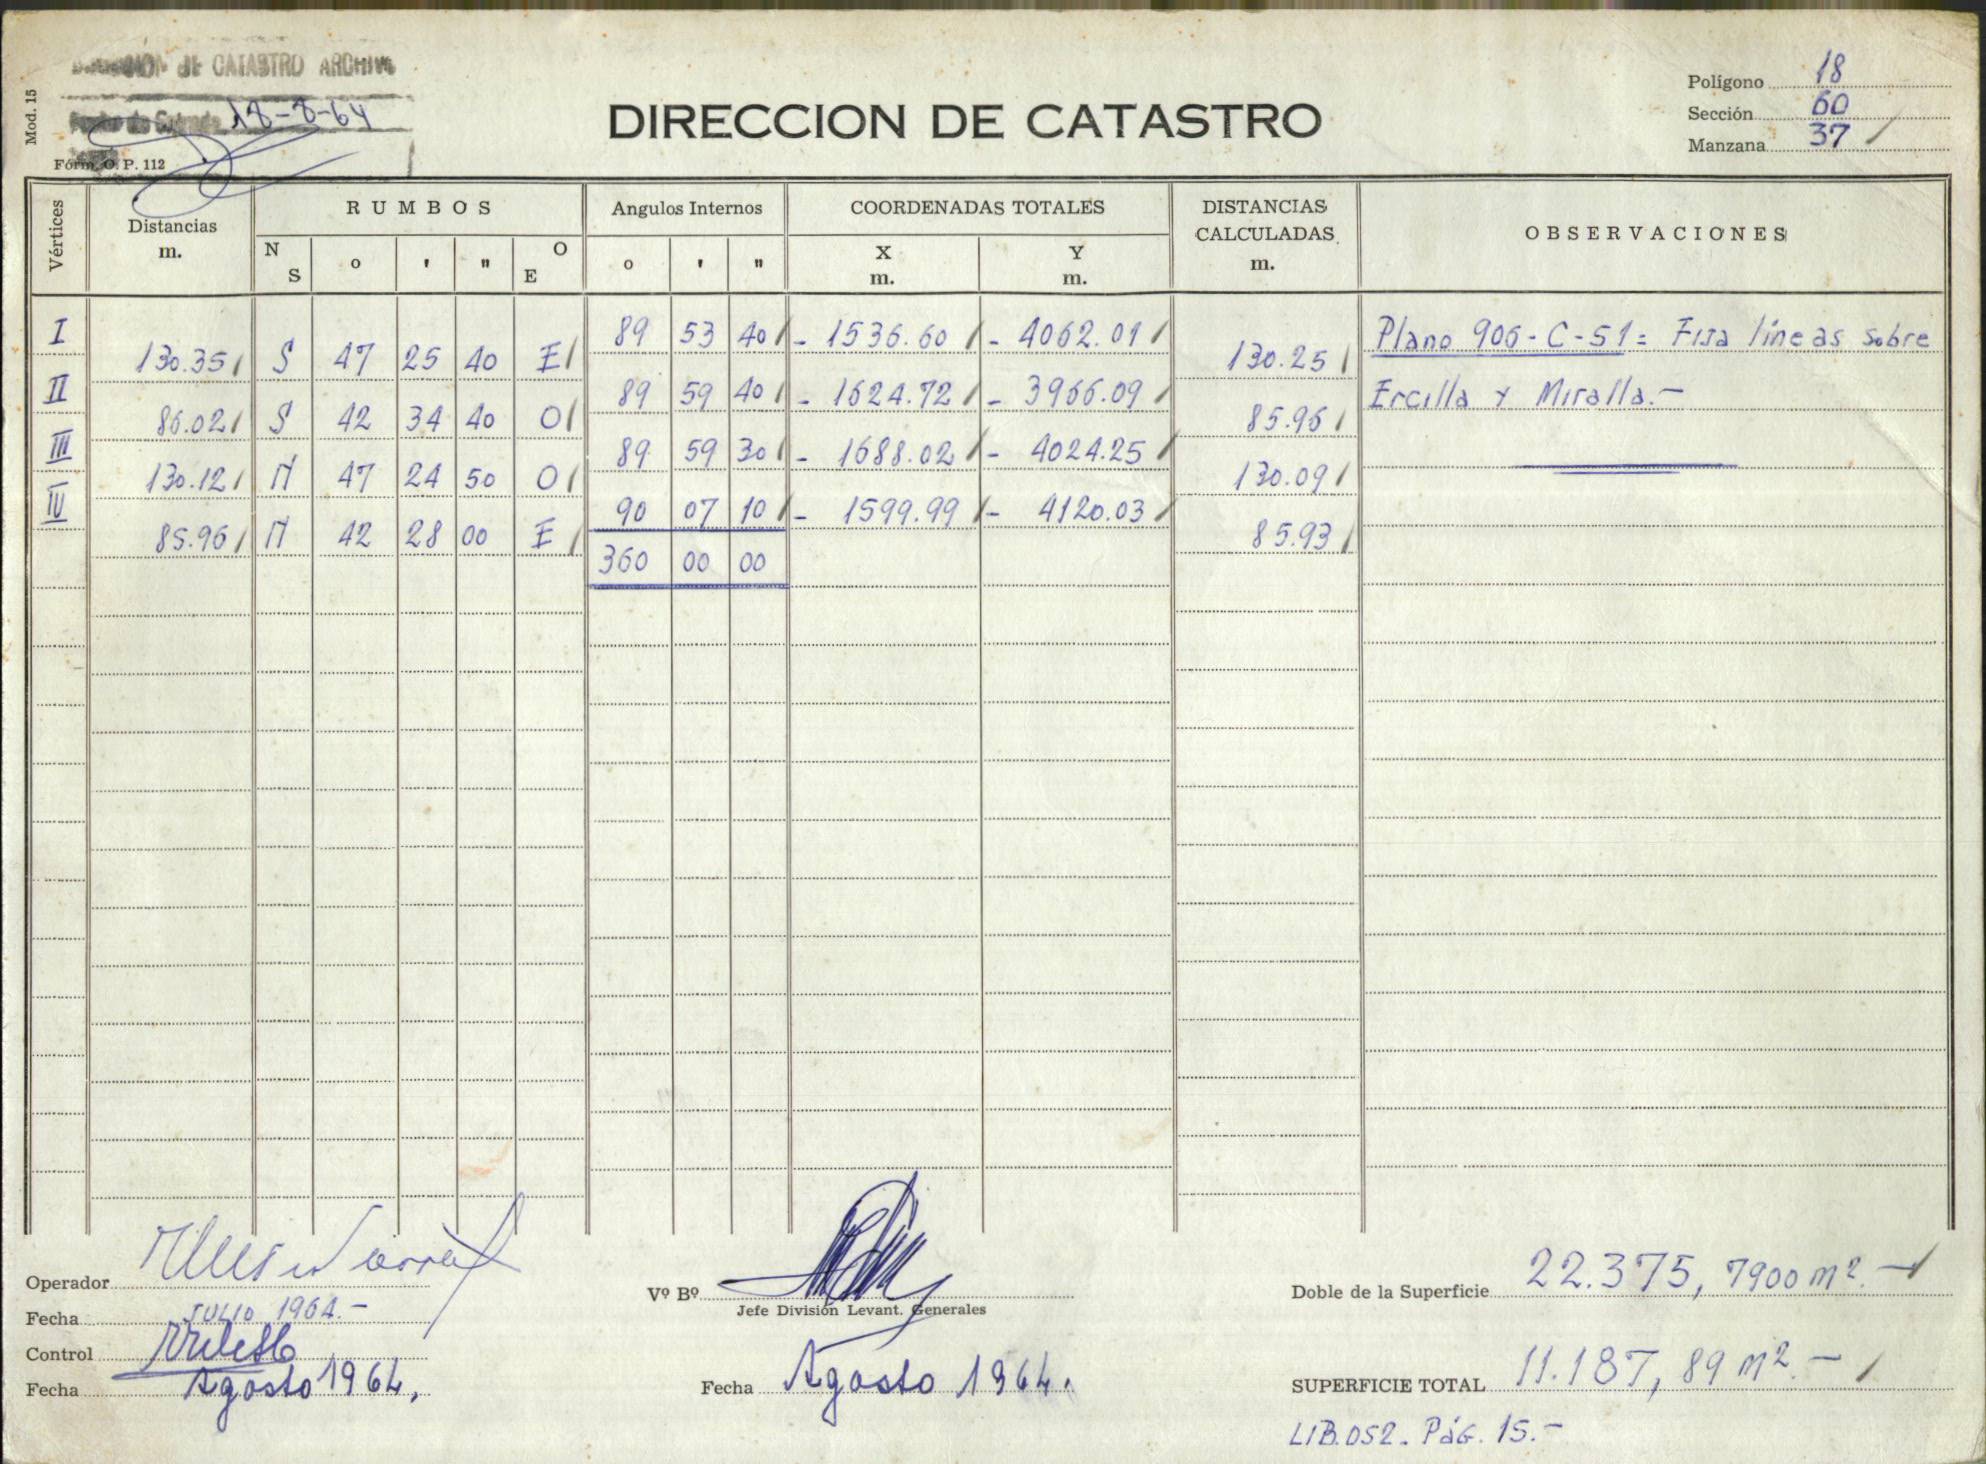 DIRECCION DE CATASTRO ARCHIVO
18-8-64
Mod. 15
Fórm. O. P. 112
DIRECCION DE CATASTRO
Polígono 18
Sección 60
Manzana 37
Vértices
Distancias m.
RUMBOS
N S o ' " O E
Angulos Internos
o ' "
COORDENADAS TOTALES
X m.
Y m.
DISTANCIAS CALCULADAS m.
OBSERVACIONES
I 89 53 40 - 1536.60 - 4062.01
Plano 906-C-51= Fija líneas sobre
130.35 S 47 25 40 E 130.25
II 89 59 40 - 1624.72 - 3966.09
Ercilla y Miralla.-
86.02 S 42 34 40 O 85.96
III 89 59 30 - 1688.02 - 4024.25
130.12 N 47 24 50 O 130.09
IV 90 07 10 - 1599.99 - 4120.03
85.96 N 42 28 00 E 85.93
360 00 00
Operador
Fecha JULIO 1964.-
Control
Fecha Agosto 1964.
Vº Bº
Jefe División Levant. Generales
Fecha Agosto 1964.
Doble de la Superficie 22.375,7900 m2.-
SUPERFICIE TOTAL 11.187,89 m2.-
LIB.052. Pág. 15.-